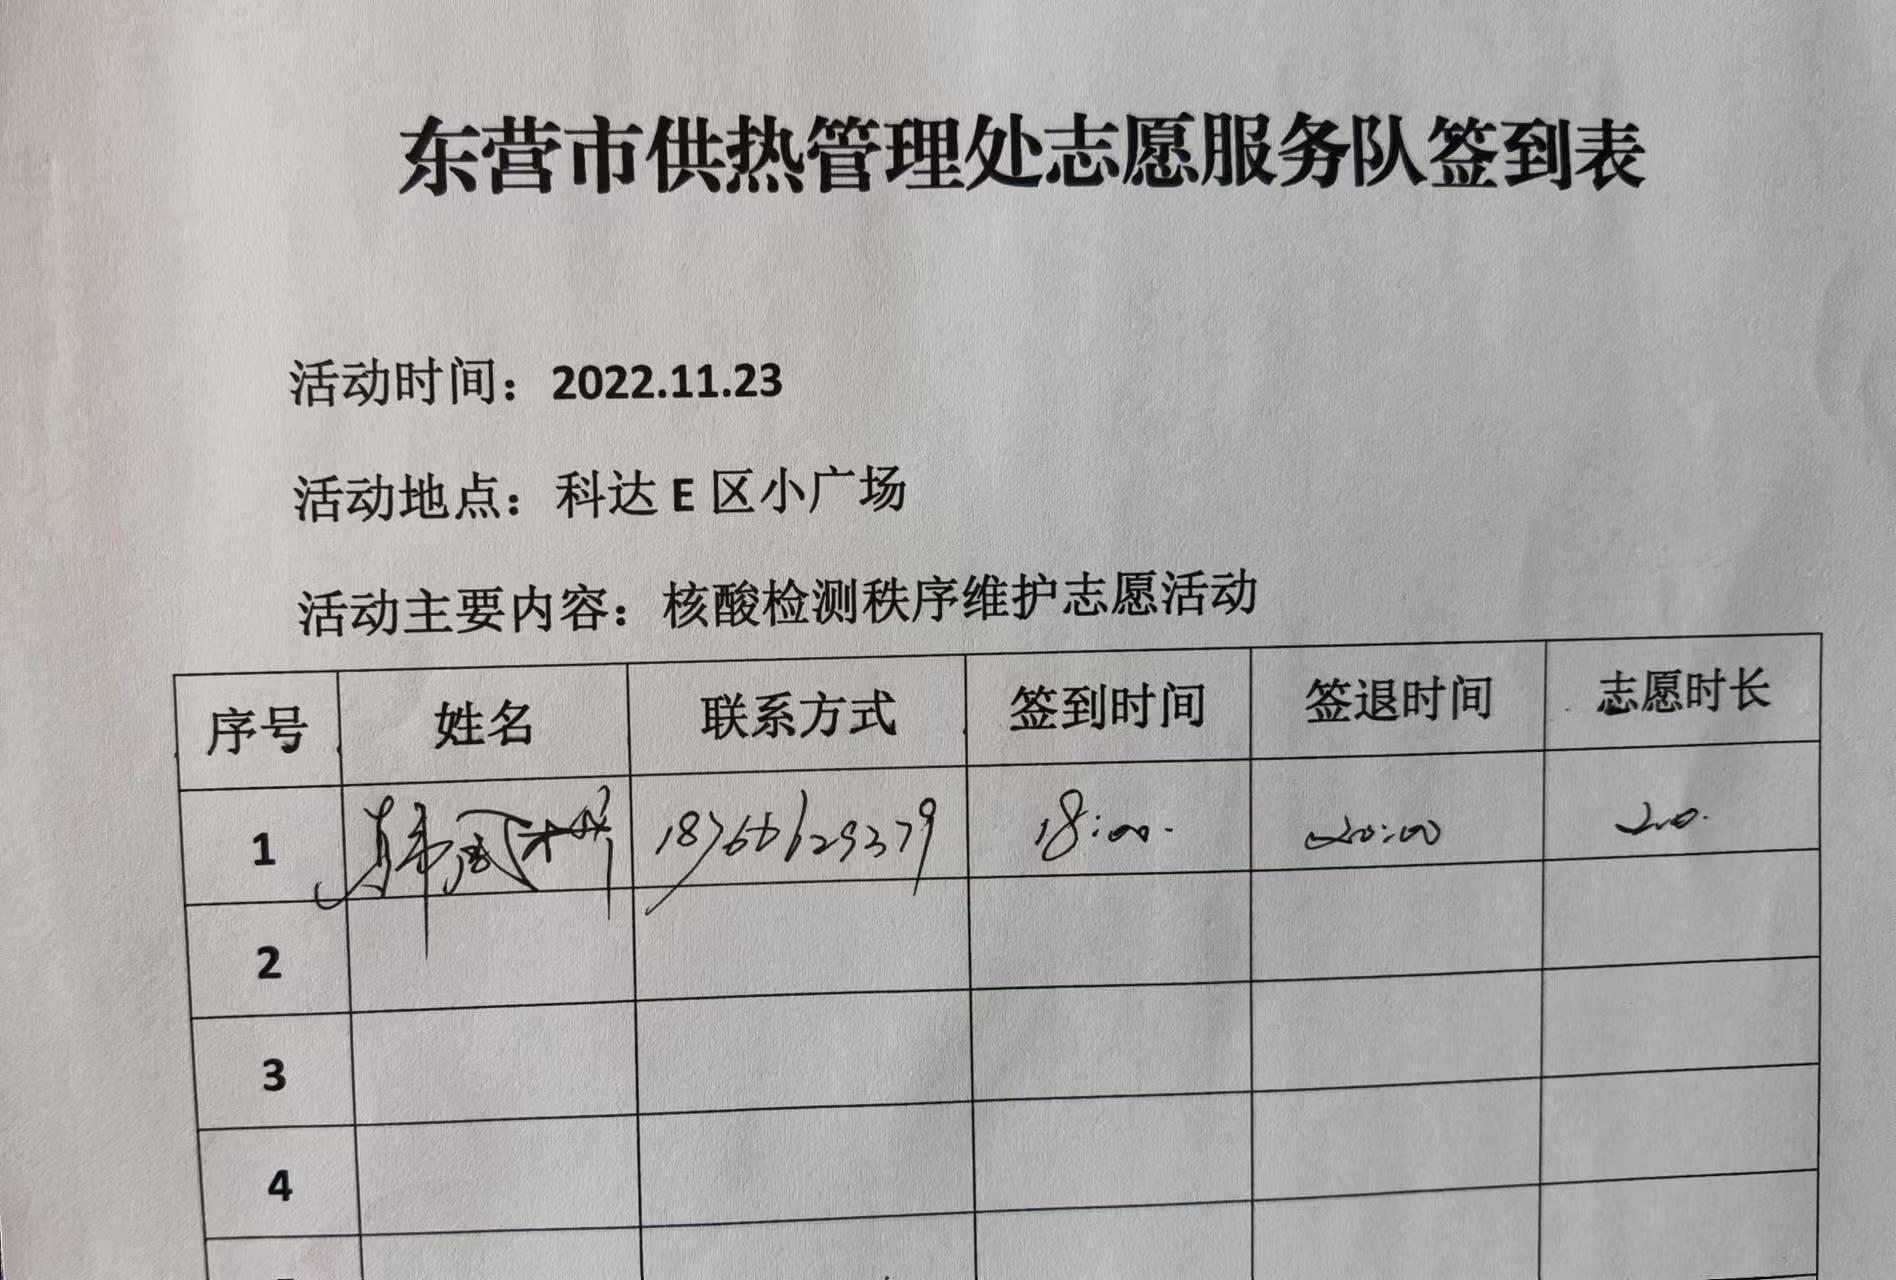 东营市供热管理处志愿服务队签到表
活动时间：2022.11.23
活动地点：科达 E 区小广场
活动主要内容：核酸检测秩序维护志愿活动
序号 姓名 联系方式 签到时间 签退时间 志愿时长
1 18766629379 18:00. 20:00 2.0.
2
3
4